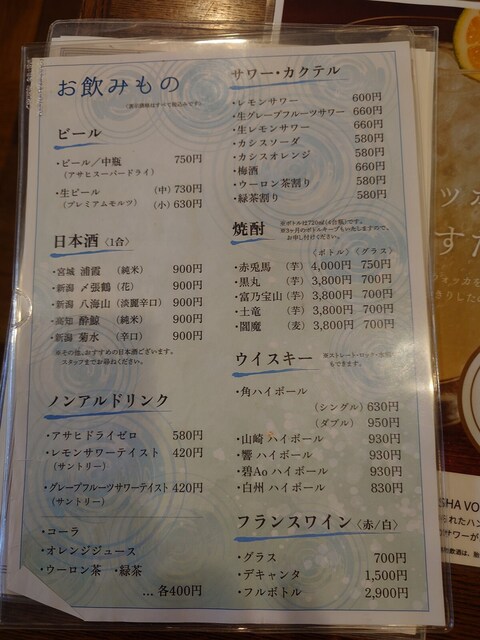 お飲みもの
(表示価格はすべて税込みです)
ビール
・ビール／中瓶 750円
(アサヒスーパードライ)
・生ビール (中) 730円
(プレミアムモルツ) (小) 630円
日本酒〈1合〉
・宮城 浦霞 (純米) 900円
・新潟 〆張鶴 (花) 900円
・新潟 八海山 (淡麗辛口) 900円
・高知 酔鯨 (純米) 900円
・新潟 菊水 (辛口) 900円
※その他、おすすめの日本酒ございます。
スタッフまでお尋ねください。
ノンアルドリンク
・アサヒドライゼロ 580円
・レモンサワーテイスト 420円
(サントリー)
・グレープフルーツサワーテイスト 420円
(サントリー)
・コーラ
・オレンジジュース
・ウーロン茶 ・緑茶
… 各400円
サワー・カクテル
・レモンサワー 600円
・生グレープフルーツサワー 660円
・生レモンサワー 660円
・カシスソーダ 580円
・カシスオレンジ 580円
・梅酒 660円
・ウーロン茶割り 580円
・緑茶割り 580円
焼酎
※ボトルは720ml(4合瓶)です。
※3ヶ月のボトルキープもいたしますので、
お申し付けください。
〈ボトル〉〈グラス〉
・赤兎馬 (芋) 4,000円 750円
・黒丸 (芋) 3,800円 700円
・富乃宝山 (芋) 3,800円 700円
・土竜 (芋) 3,800円 700円
・閻魔 (麦) 3,800円 700円
ウイスキー
※ストレート・ロック・水割
もできます。
・角ハイボール
(シングル) 630円
(ダブル) 950円
・山崎 ハイボール 930円
・響 ハイボール 930円
・碧Ao ハイボール 930円
・白州 ハイボール 830円
フランスワイン〈赤/白〉
・グラス 700円
・デキャンタ 1,500円
・フルボトル 2,900円
ッカ
すた
ウォッカを
SHA VO
れたハン
サワーが